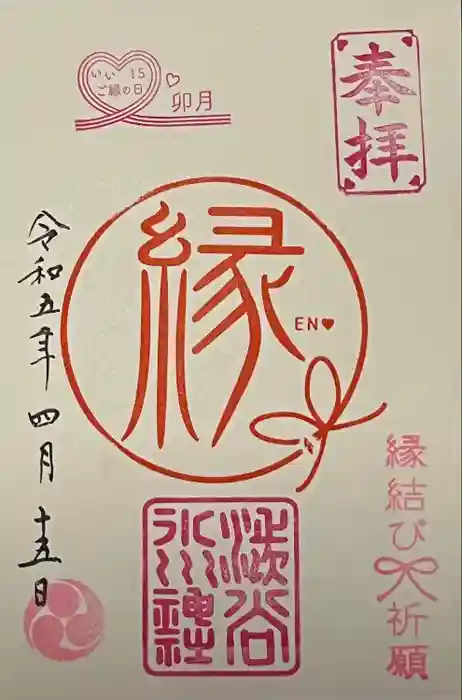 奉拝
いい 15
ご縁の日
卯月
縁
EN
縁結び
祈願
澁谷
氷川
神社
令和五年四月十五日